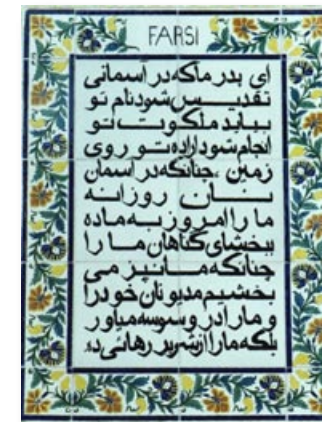 FARSI
ای پدر ماکه در آسمانی
تقدیـس شود نام تو
بیاید ملکوت تو
انجام شود اراده تو روی
زمین ،چنانکه در آسمان
نان روزانه
ما را امروز به ماده
ببخشای گناهان ما را
چنانکه ما نیز می
بخشیم مدیونان خود را
و ما را در وسوسه میاور
بلکه ما را از شریر رهائی ده.